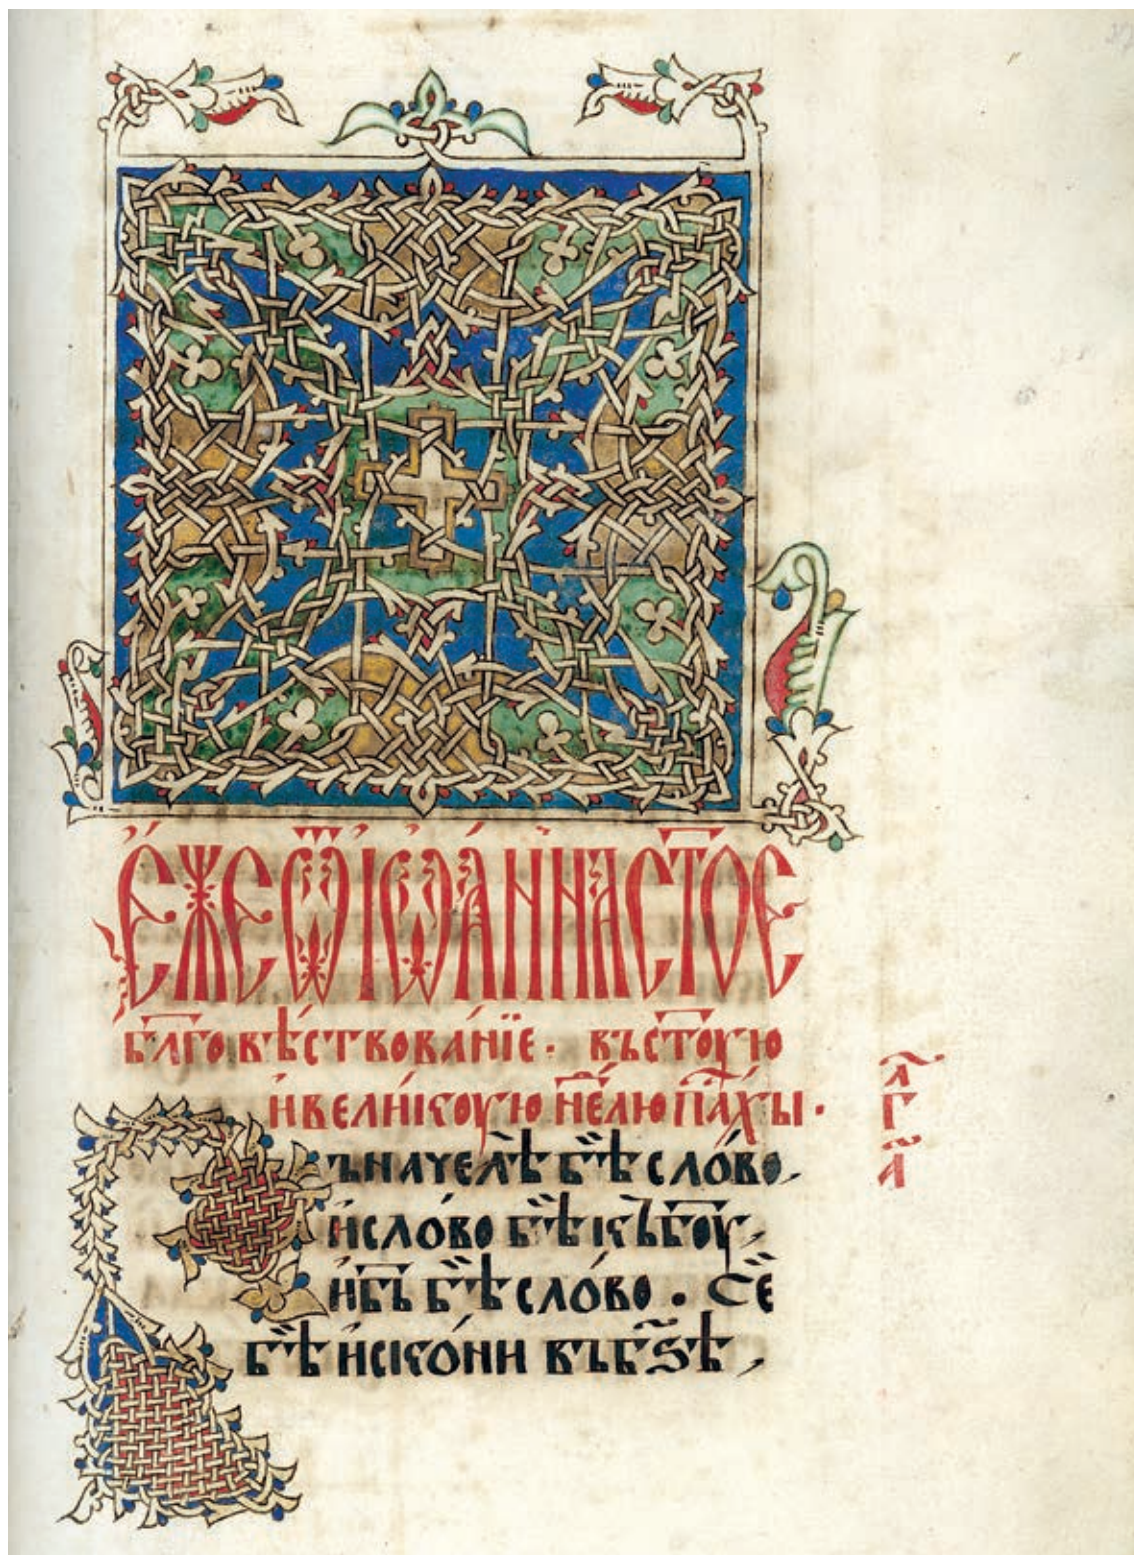 Е́ЖЕ Ѿ ІѠА́ННА СТ҃ОЕ
бл҃говѣ́ствова́нїе · въ ст҃оую
и҆ вели́коую не҃лю па́схы ·
ъ начелѣ бѣ̏ сло́во,
и҆ сло́во бѣ̏ къ б҃оу,
и҆ б҃ъ бѣ̏ сло́во · Се̏
бѣ̏ и҆ско́ни въ б҃ѕѣ,
гл҃
а҃